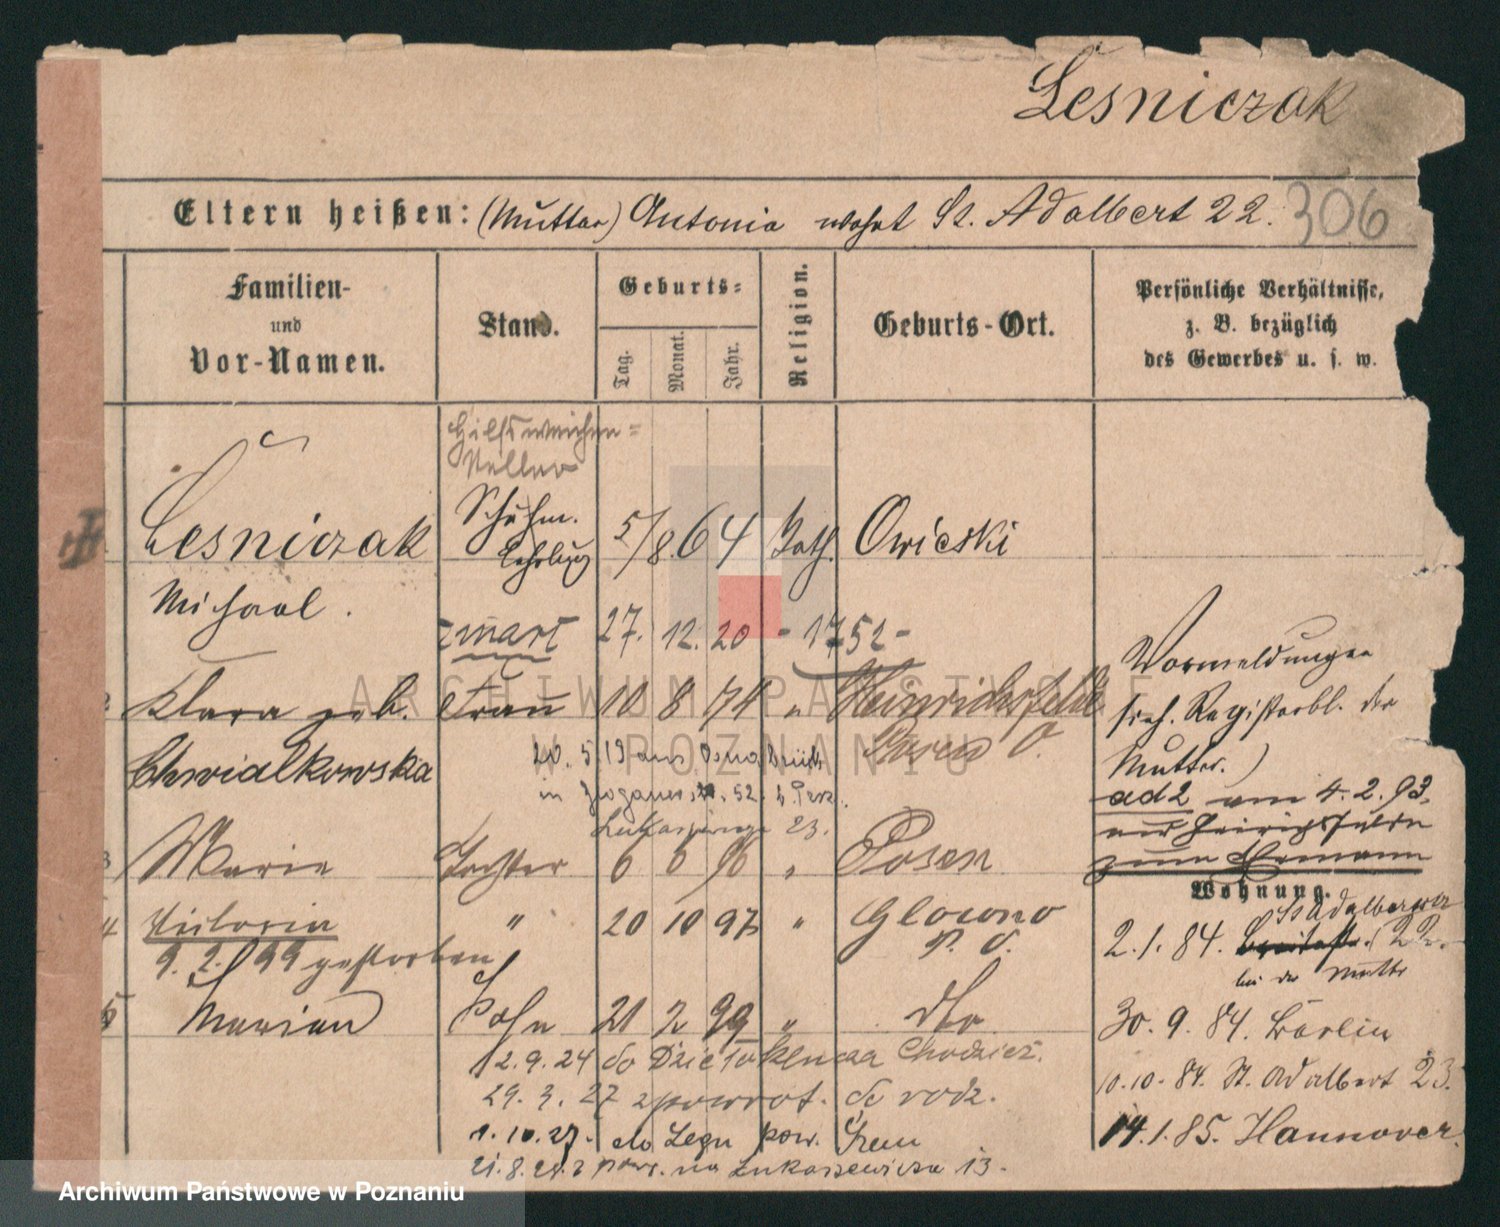 Lesniczak
Eltern heißen: (Mutter) Antonia wohnt St. Adalbert 22.
306
Familien-
und
Vor-Namen.
Stand.
Geburts-
Tag.
Monat.
Jahr.
Religion.
Geburts-Ort.
Persönliche Verhältnisse,
z. B. bezüglich
des Gewerbes u. s. w.
Hilfsweichen-
steller
Lesniczak
Schuhm.
Lehrling
5/8 64 Kath. Owieski
Michael.
zmarł 27. 12. 20 - 1752 -
2 Klara geb. Frau 10 8 74 " Heinrichsfelde
Chwialkowska
Posen O.
20. 5. 19 aus Osnabrück
in
Lukas 23.
3 Marie Tochter 6 6 96 " Posen
4 Victoria " 20 10 97 " Glowno
P. O.
9. 2. 99 gestorben
5 Marian Sohn 21 2 99 " dto
12.9.24 do Chodzież.
29. 3. 27 z powrot. do rodz.
1. 10. 27. do Łęgu pow. Śrem
21.8.28 z pow. na Łukaszewicza 13.
Vormeldungen
sieh. Registerbl. der
Mutter.)
ad 2 am 4. 2. 93.
aus Heinrichsfelde
zum Ehemann
Wohnung.
St Adalbert
2.1.84. 22.
bei der Mutter
30. 9. 84. Berlin
10.10. 84. St. Adalbert 23.
14.1.85. Hannover.
ARCHIWUM PAŃSTWOWE
W POZNANIU
Archiwum Państwowe w Poznaniu